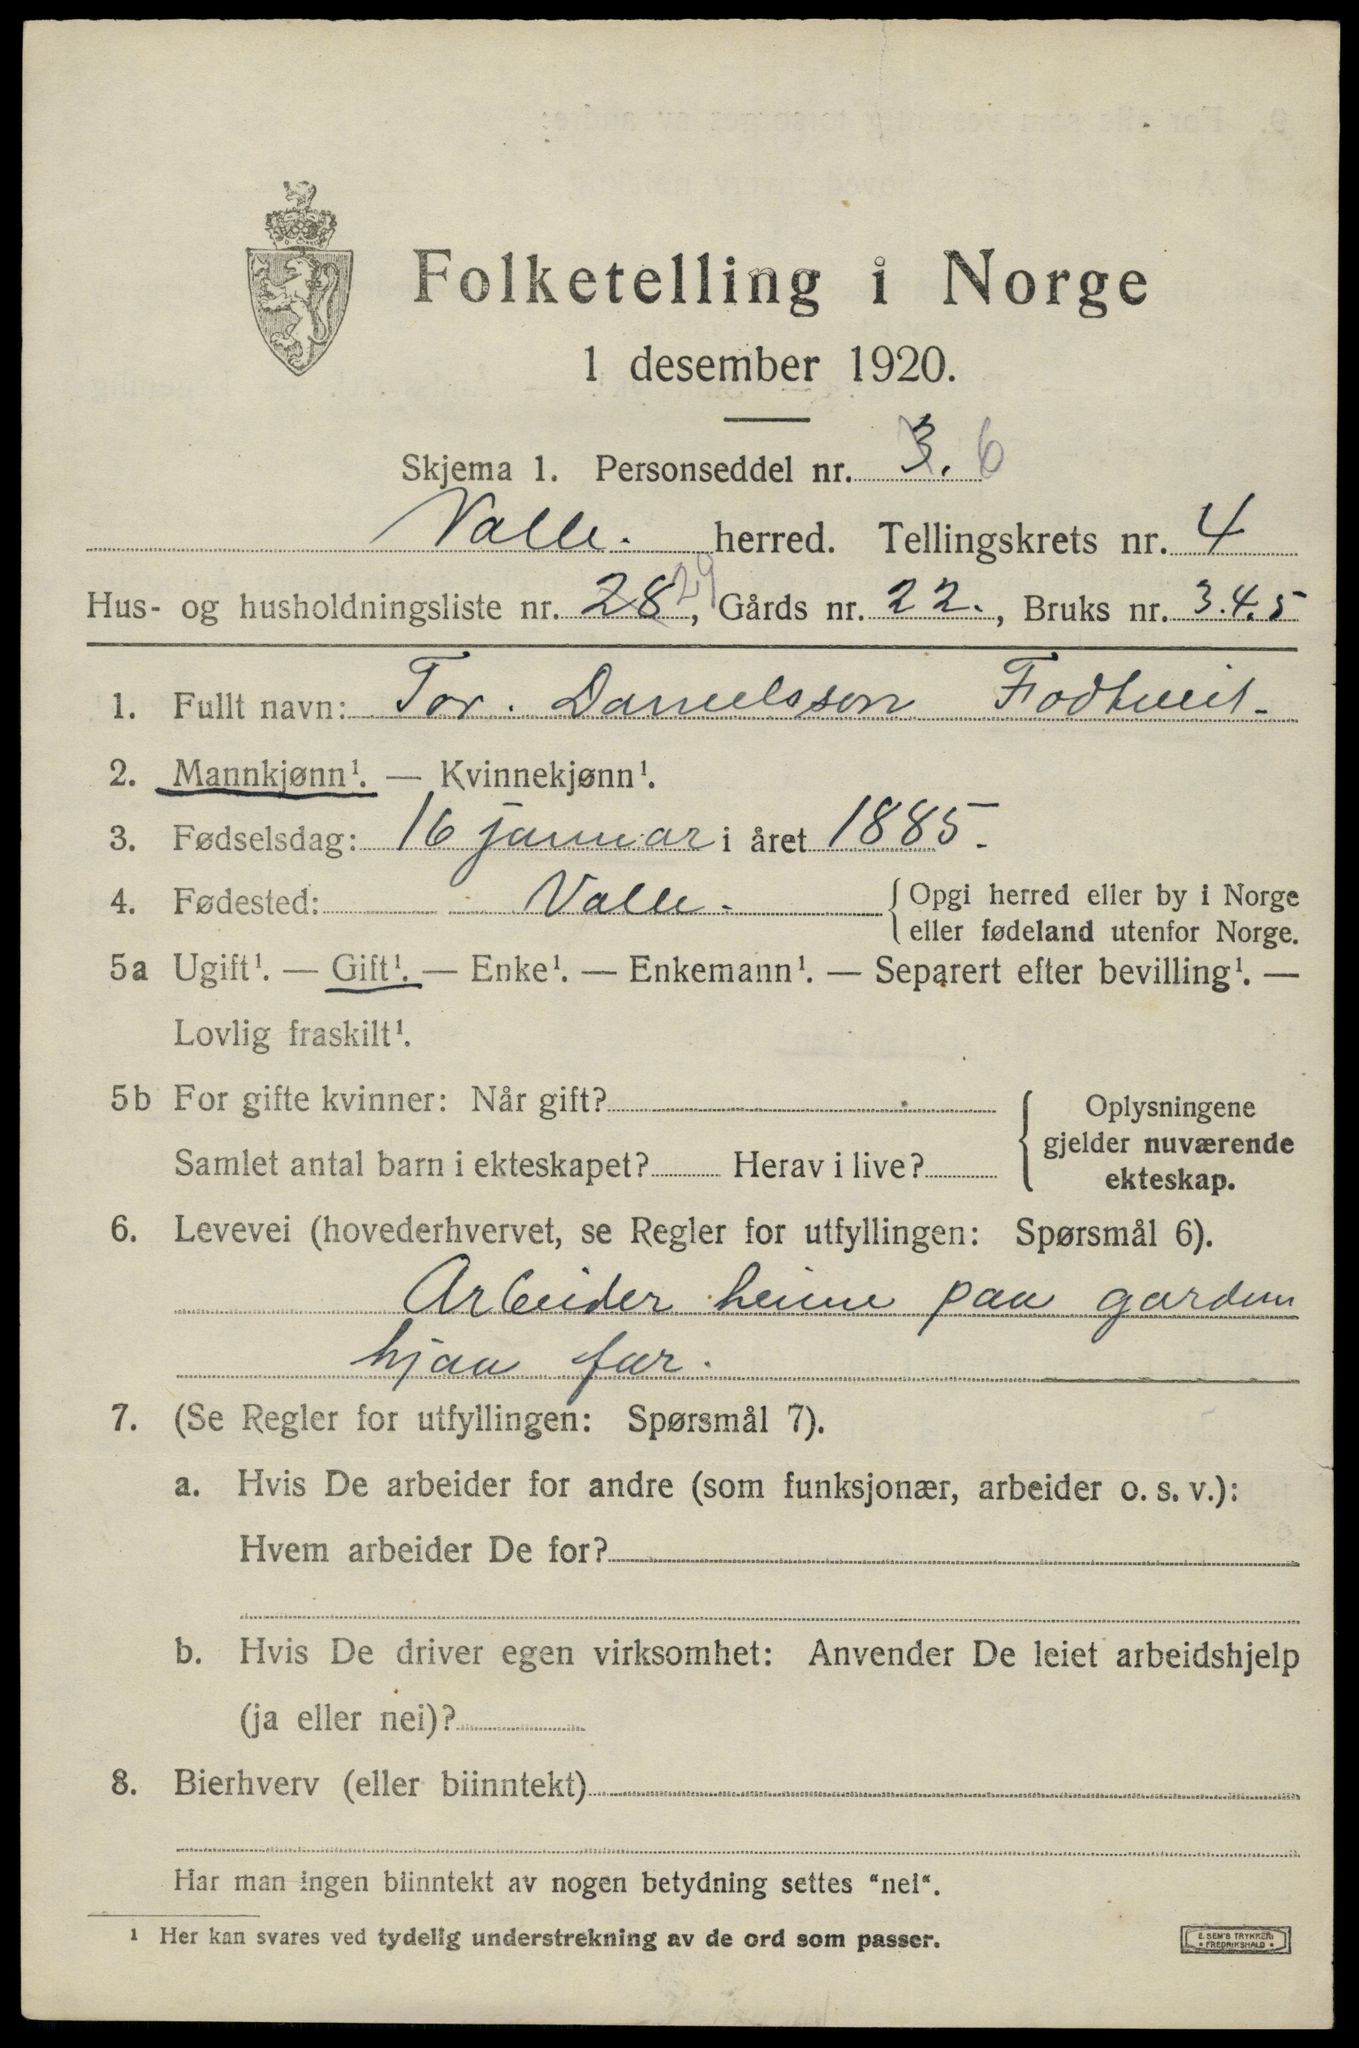 Folketelling i Norge
1 desember 1920.
Skjema 1. Personseddel nr. 3. 6
Valle. herred. Tellingskrets nr. 4
Hus- og husholdningsliste nr. 28 29, Gårds nr. 22., Bruks nr. 3.4.5
1. Fullt navn: Tor. Danielsson Fodtveit-
2. Mannkjønn¹. — Kvinnekjønn¹.
3. Fødselsdag: 16 januar i året 1885.
4. Fødested: Valle. { Opgi herred eller by i Norge
eller fødeland utenfor Norge.
5a Ugift¹. — Gift¹. — Enke¹. — Enkemann¹. — Separert efter bevilling¹. —
Lovlig fraskilt¹.
5b For gifte kvinner: Når gift?
Samlet antal barn i ekteskapet? Herav i live?
{ Oplysningene
gjelder nuværende
ekteskap.
6. Levevei (hovederhvervet, se Regler for utfyllingen: Spørsmål 6).
Arbeider heime paa garden
hjaa far.
7. (Se Regler for utfyllingen: Spørsmål 7).
a. Hvis De arbeider for andre (som funksjonær, arbeider o. s. v.):
Hvem arbeider De for?
b. Hvis De driver egen virksomhet: Anvender De leiet arbeidshjelp
(ja eller nei)?
8. Bierhverv (eller biinntekt)
Har man ingen biinntekt av nogen betydning settes "nei".
¹ Her kan svares ved tydelig understrekning av de ord som passer.
E. SEM'S TRYKKERI
• FREDRIKSHALD •